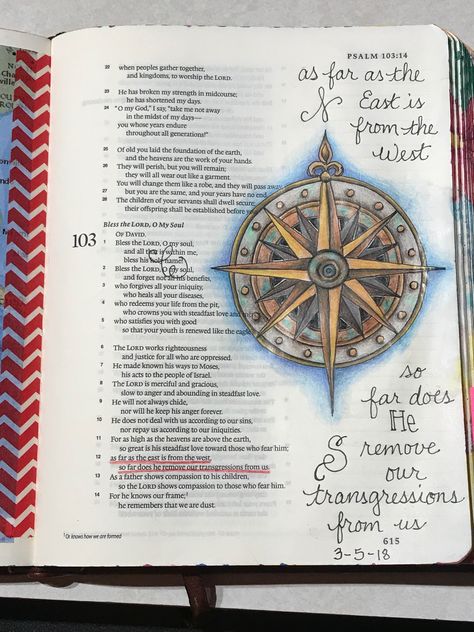 PSALM 103:14
22 when peoples gather together,
and kingdoms, to worship the LORD.
23 He has broken my strength in midcourse;
he has shortened my days.
24 "O my God," I say, "take me not away
in the midst of my days—
you whose years endure
throughout all generations!"
25 Of old you laid the foundation of the earth,
and the heavens are the work of your hands.
26 They will perish, but you will remain;
they will all wear out like a garment.
You will change them like a robe, and they will pass away
27 but you are the same, and your years have no end
28 The children of your servants shall dwell secure
their offspring shall be established before
Bless the LORD, O My Soul
103 OF DAVID.
1 Bless the LORD, O my soul,
and all that is within me,
bless his holy name!
2 Bless the LORD, O my soul,
and forget not all his benefits,
3 who forgives all your iniquity,
who heals all your diseases,
4 who redeems your life from the pit,
who crowns you with steadfast love and
5 who satisfies you with good
so that your youth is renewed like the eagle
6 The LORD works righteousness
and justice for all who are oppressed.
7 He made known his ways to Moses,
his acts to the people of Israel.
8 The LORD is merciful and gracious,
slow to anger and abounding in steadfast love.
9 He will not always chide,
nor will he keep his anger forever.
10 He does not deal with us according to our sins,
nor repay us according to our iniquities.
11 For as high as the heavens are above the earth,
so great is his steadfast love toward those who fear him;
12 as far as the east is from the west,
so far does he remove our transgressions from us.
13 As a father shows compassion to his children,
so the LORD shows compassion to those who fear him.
14 For he knows our frame;1
he remembers that we are dust.
1 Or knows how we are formed
as far as the
N East is
from the
West
so
far does
He
S remove
our
transgressions
from us
615
3-5-18